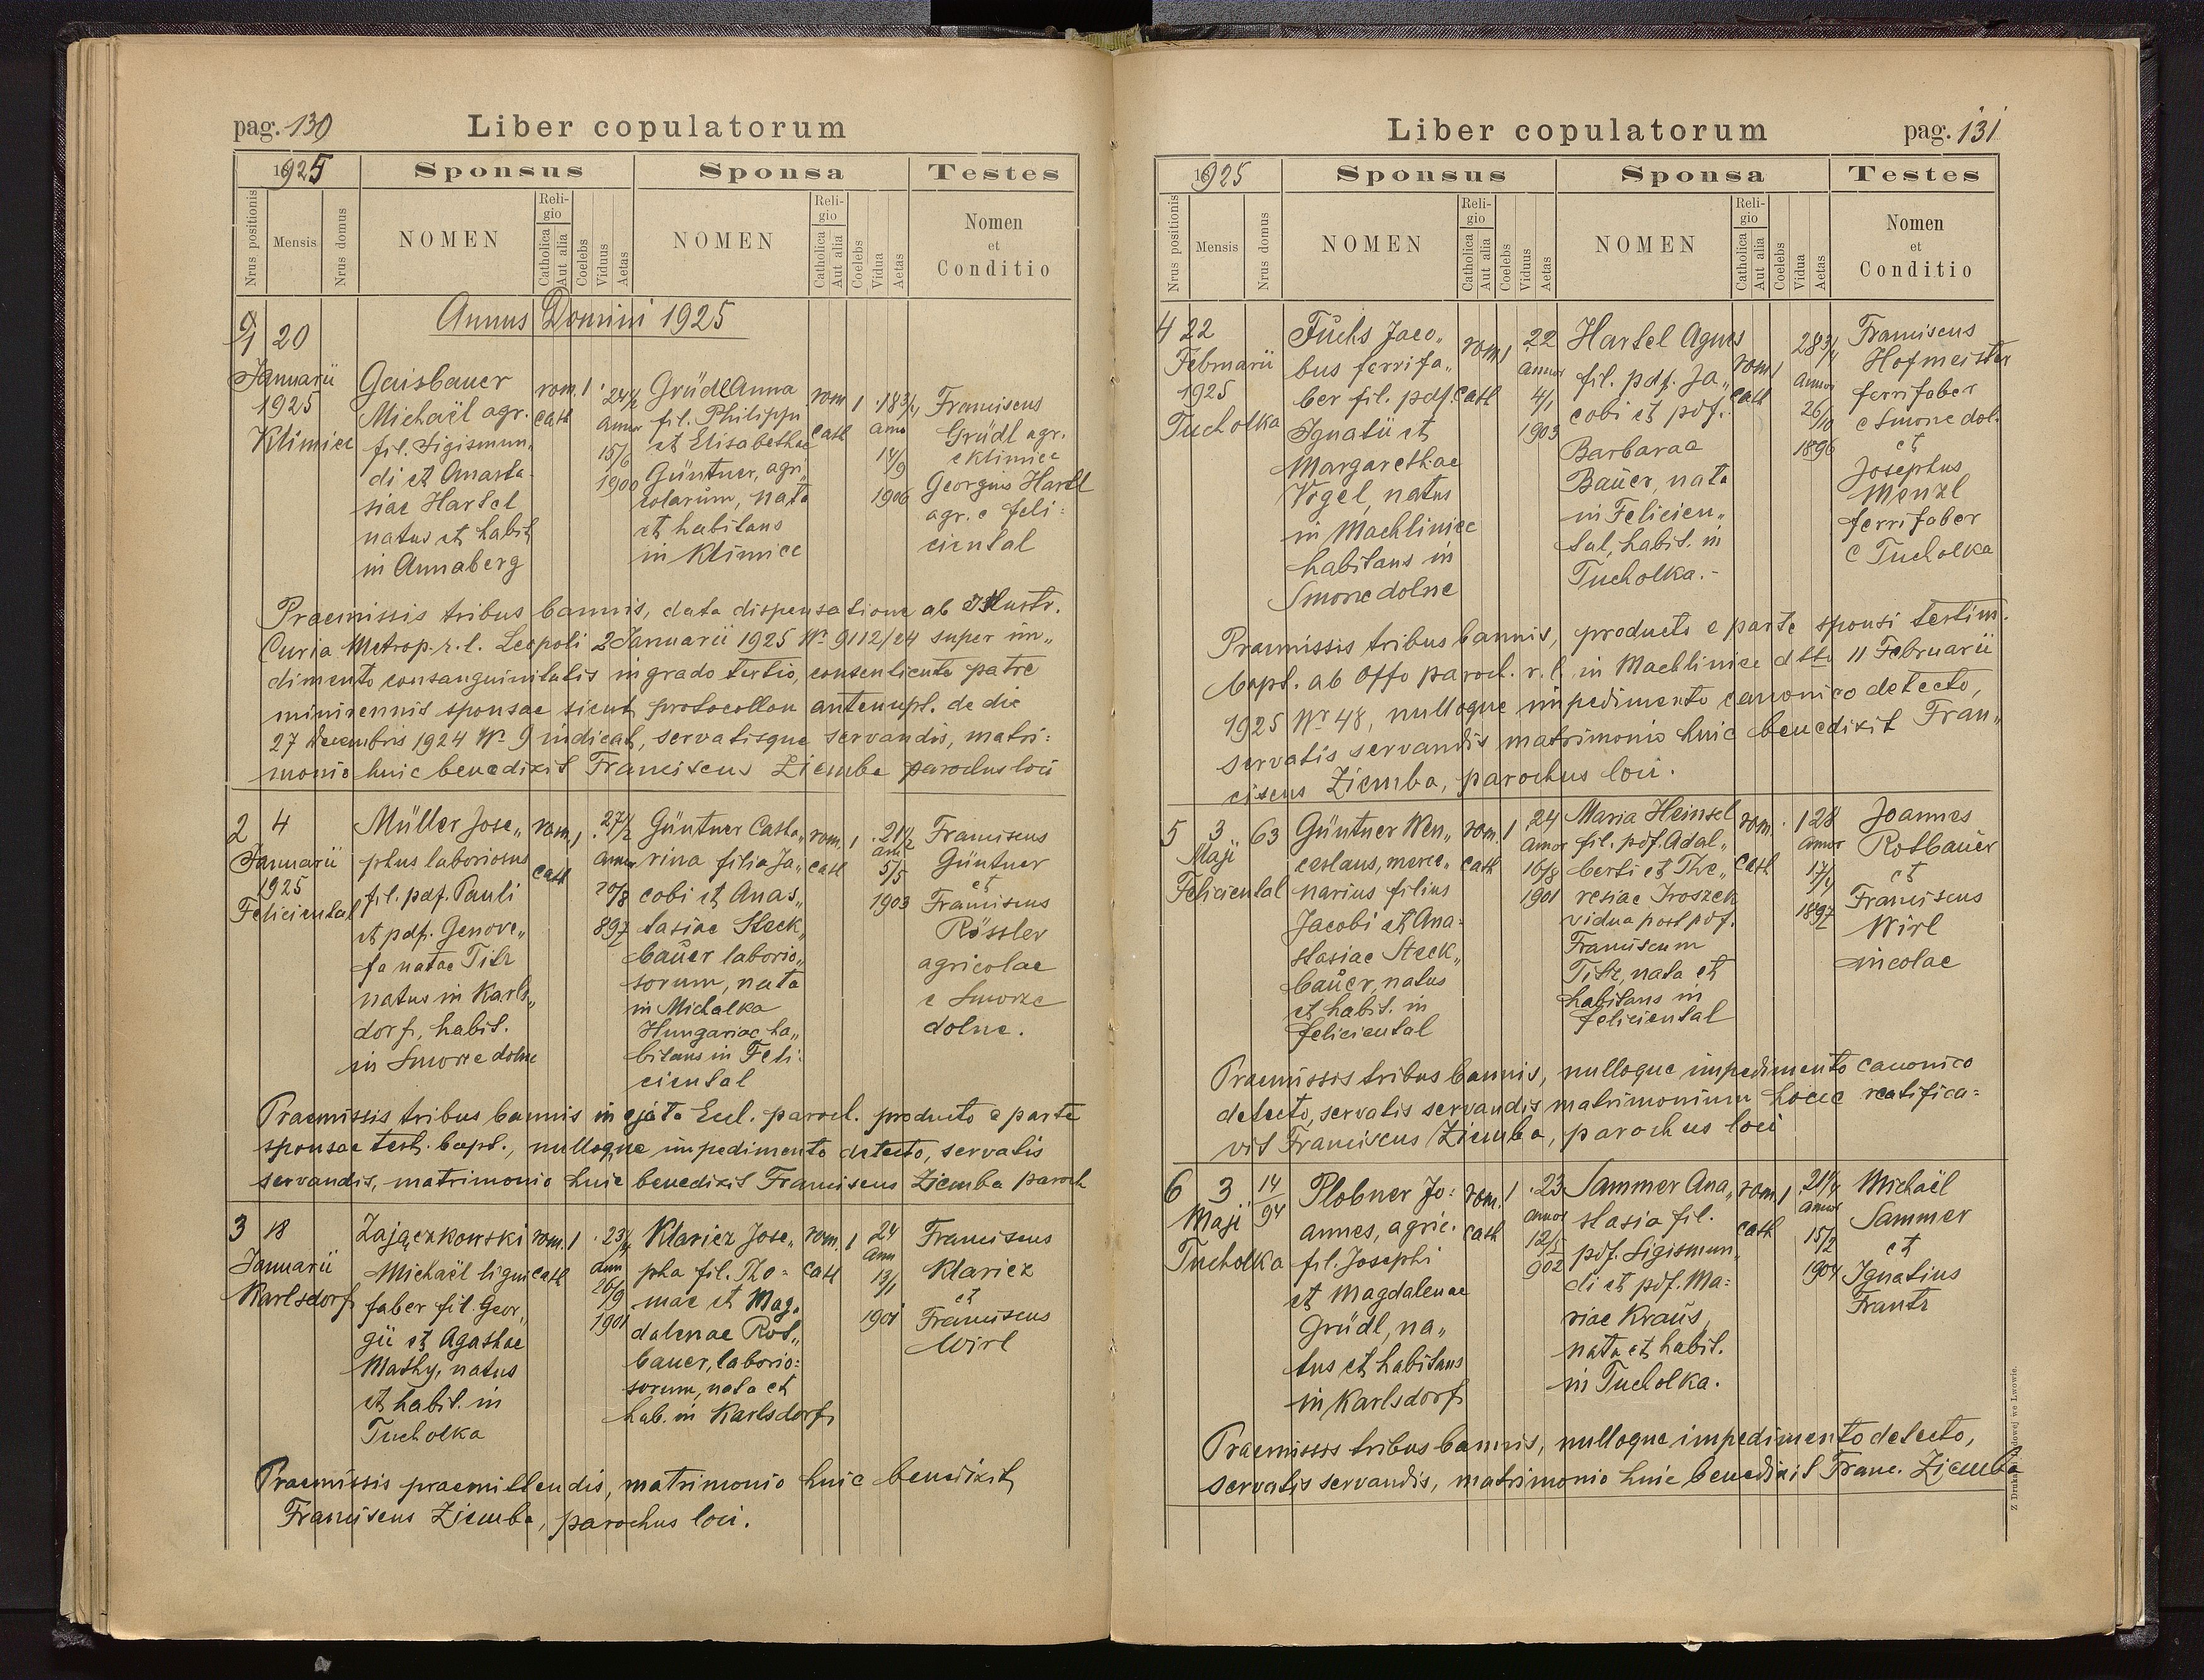 pag. 130
Liber copulatorum
1925
Sponsus
Sponsa
Testes
Nrus positionis
Mensis
Nrus domus
NOMEN
Religio
Catholica
Aut alia
Coelebs
Viduus
Aetas
NOMEN
Religio
Catholica
Aut alia
Coelebs
Vidua
Aetas
Nomen
et
Conditio
Annus Domini 1925
1 20
Januarii
1925
Klimiec
Gaisbauer
Michaël agr.
fil. Sigismun„
di et Anasta-
siae Hartel
natus et habit
in Annaberg
rom. 1
cath
24½
annor
15/6
1900
Grüdl Anna
fil. Philippi
et Elisabethae
Güntner, agri„
colarum, nata
et habitans
in Klimiec
rom 1
cath
18¾
anno
14/9
1906
Franciscus
Grüdl agr.
e Klimiec
Georgius Hartl
agr. e Feli=
ciental
Praemissis tribus bannis, data dispensatione ab Illustr.
Curia Metrop. r. l. Leopoli 2 Januarii 1925 Nº 9112/24 super im„
dimento consanguinitatis in grado tertio, consentiente patre
minorennis sponsae sicut protocollon antenupt. de die
27 Decembris 1924 Nº 9 indicat, servatisque servandis, matri=
monio huic benedixit Franciscus Ziemba parochus loci
2 4
Januarii
1925
Feliciental
Müller Jose„
phus laboriosus
fil. pdf. Pauli
et pdf. Genove„
fa natae Titz
natus in Karls„
dorf, habit.
in Smorze dolne
rom. 1
cath
27½
annor
20/8
897
Güntner Catha„
rina filia Ja„
cobi et Anas„
tasiae Steck„
bauer laborio„
sorum, nata
in Michalka
Hungariae ha„
bitans in Feli=
ciental
rom. 1
cath
21½
ann
5/5
1903
Franciscus
Güntner
et
Franciscus
Rössler
agricolae
e Smorze
dolne.
Praemissis tribus bannis in ejata Eccl. paroch. producto e parte
sponsae test. bapt., nulloque impedimento detecto, servatis
servandis, matrimonio huic benedixit Franciscus Ziemba paroch
3 18
Januarii
Karlsdorf
Zajączkowski
Michaël ligni
faber fil. Geor„
gii et Agathae
Mathy, natus
et habit. in
Tucholka
rom. 1
cath
23¼
ann
26/9
1901
Klaricz Jose„
pha fil. Tho=
mae et Mag.
dalenae Rot„
bauer, laborio=
sorum, nata et
hab. in Karlsdorf
rom. 1
cath
24
ann
13/1
1901
Franciscus
Klaricz
et
Franciscus
Wirl
Praemissis praemittendis, matrimonio huic benedixit
Franciscus Ziemba, parochus loci.
Liber copulatorum
pag. 131
1925
Sponsus
Sponsa
Testes
Nrus positionis
Mensis
Nrus domus
NOMEN
Religio
Catholica
Aut alia
Coelebs
Viduus
Aetas
NOMEN
Religio
Catholica
Aut alia
Coelebs
Vidua
Aetas
Nomen
et
Conditio
4 22
Februarii
1925
Tucholka
Fuchs Jaco„
bus ferrifa„
ber fil. pdf.
Ignatii et
Margarethae
Vogel, natus
in Machliniec
habitans in
Smorze dolne
rom 1
cath
22
annor
4/1
1903
Hartel Agnes
fil. pdf. Ja„
cobi et pdf.
Barbarae
Bauer, nata
in Felicien„
tal, habit. in
Tucholka.-
rom 1
cath
28¾
annor
26/10
1896
Franciscus
Hofmeister
ferrifaber
e Smorze dol.
et
Josephus
Menzl
ferrifaber
e Tucholka
Praemissis tribus bannis, producto e parte sponsi testim.
bapt. ab Offo paroch. r. l. in Machliniec dtto 11 Februarii
1925 Nr 48, nulloque impedimento canonico detecto,
servatis servandis matrimonio huic benedixit Fran„
ciscus Ziemba, parochus loci.
5 3 63
Maji
Feliciental
Güntner Wen„
ceslaus, merce„
narius filius
Jacobi et Ana=
stasiae Steck„
bauer, natus
et habit. in
Feliciental
rom 1
cath
24
annor
16/8
1901
Maria Heinsel
fil. pdf. Adal„
berti et The„
resiae Iroszek
vidua post pdf.
Franciscum
Titz, nata et
habitans in
Feliciental
rom.
cath
1 28
annor
17/4
1897
Joannes
Rotbauer
et
Franciscus
Wirl
incolae
Praemissis tribus bannis, nulloque impedimento canonico
detecto, servatis servandis matrimonium hocce ratifica=
vit Franciscus Ziemba, parochus loci
6 3 14/94
Maji
Tucholka
Plobner Jo=
annes, agric.
fil. Josephi
et Magdalenae
Grüdl, na„
tus et habitans
in Karlsdorf
rom. 1
cath
23
annor
12/5
902
Sammer Ana„
stasia fil.
pdf. Sigismun„
di et pdf. Ma=
riae Kraus,
nata et habit.
in Tucholka.
rom. 1
cath
21¼
annor
15/2
1904
Michaël
Sammer
et
Ignatius
Frantz
Praemissis tribus bannis, nulloque impedimento detecto,
servatis servandis, matrimonio huic benedixit Franc. Ziemba
Z Drukarni Ludowej we Lwowie.